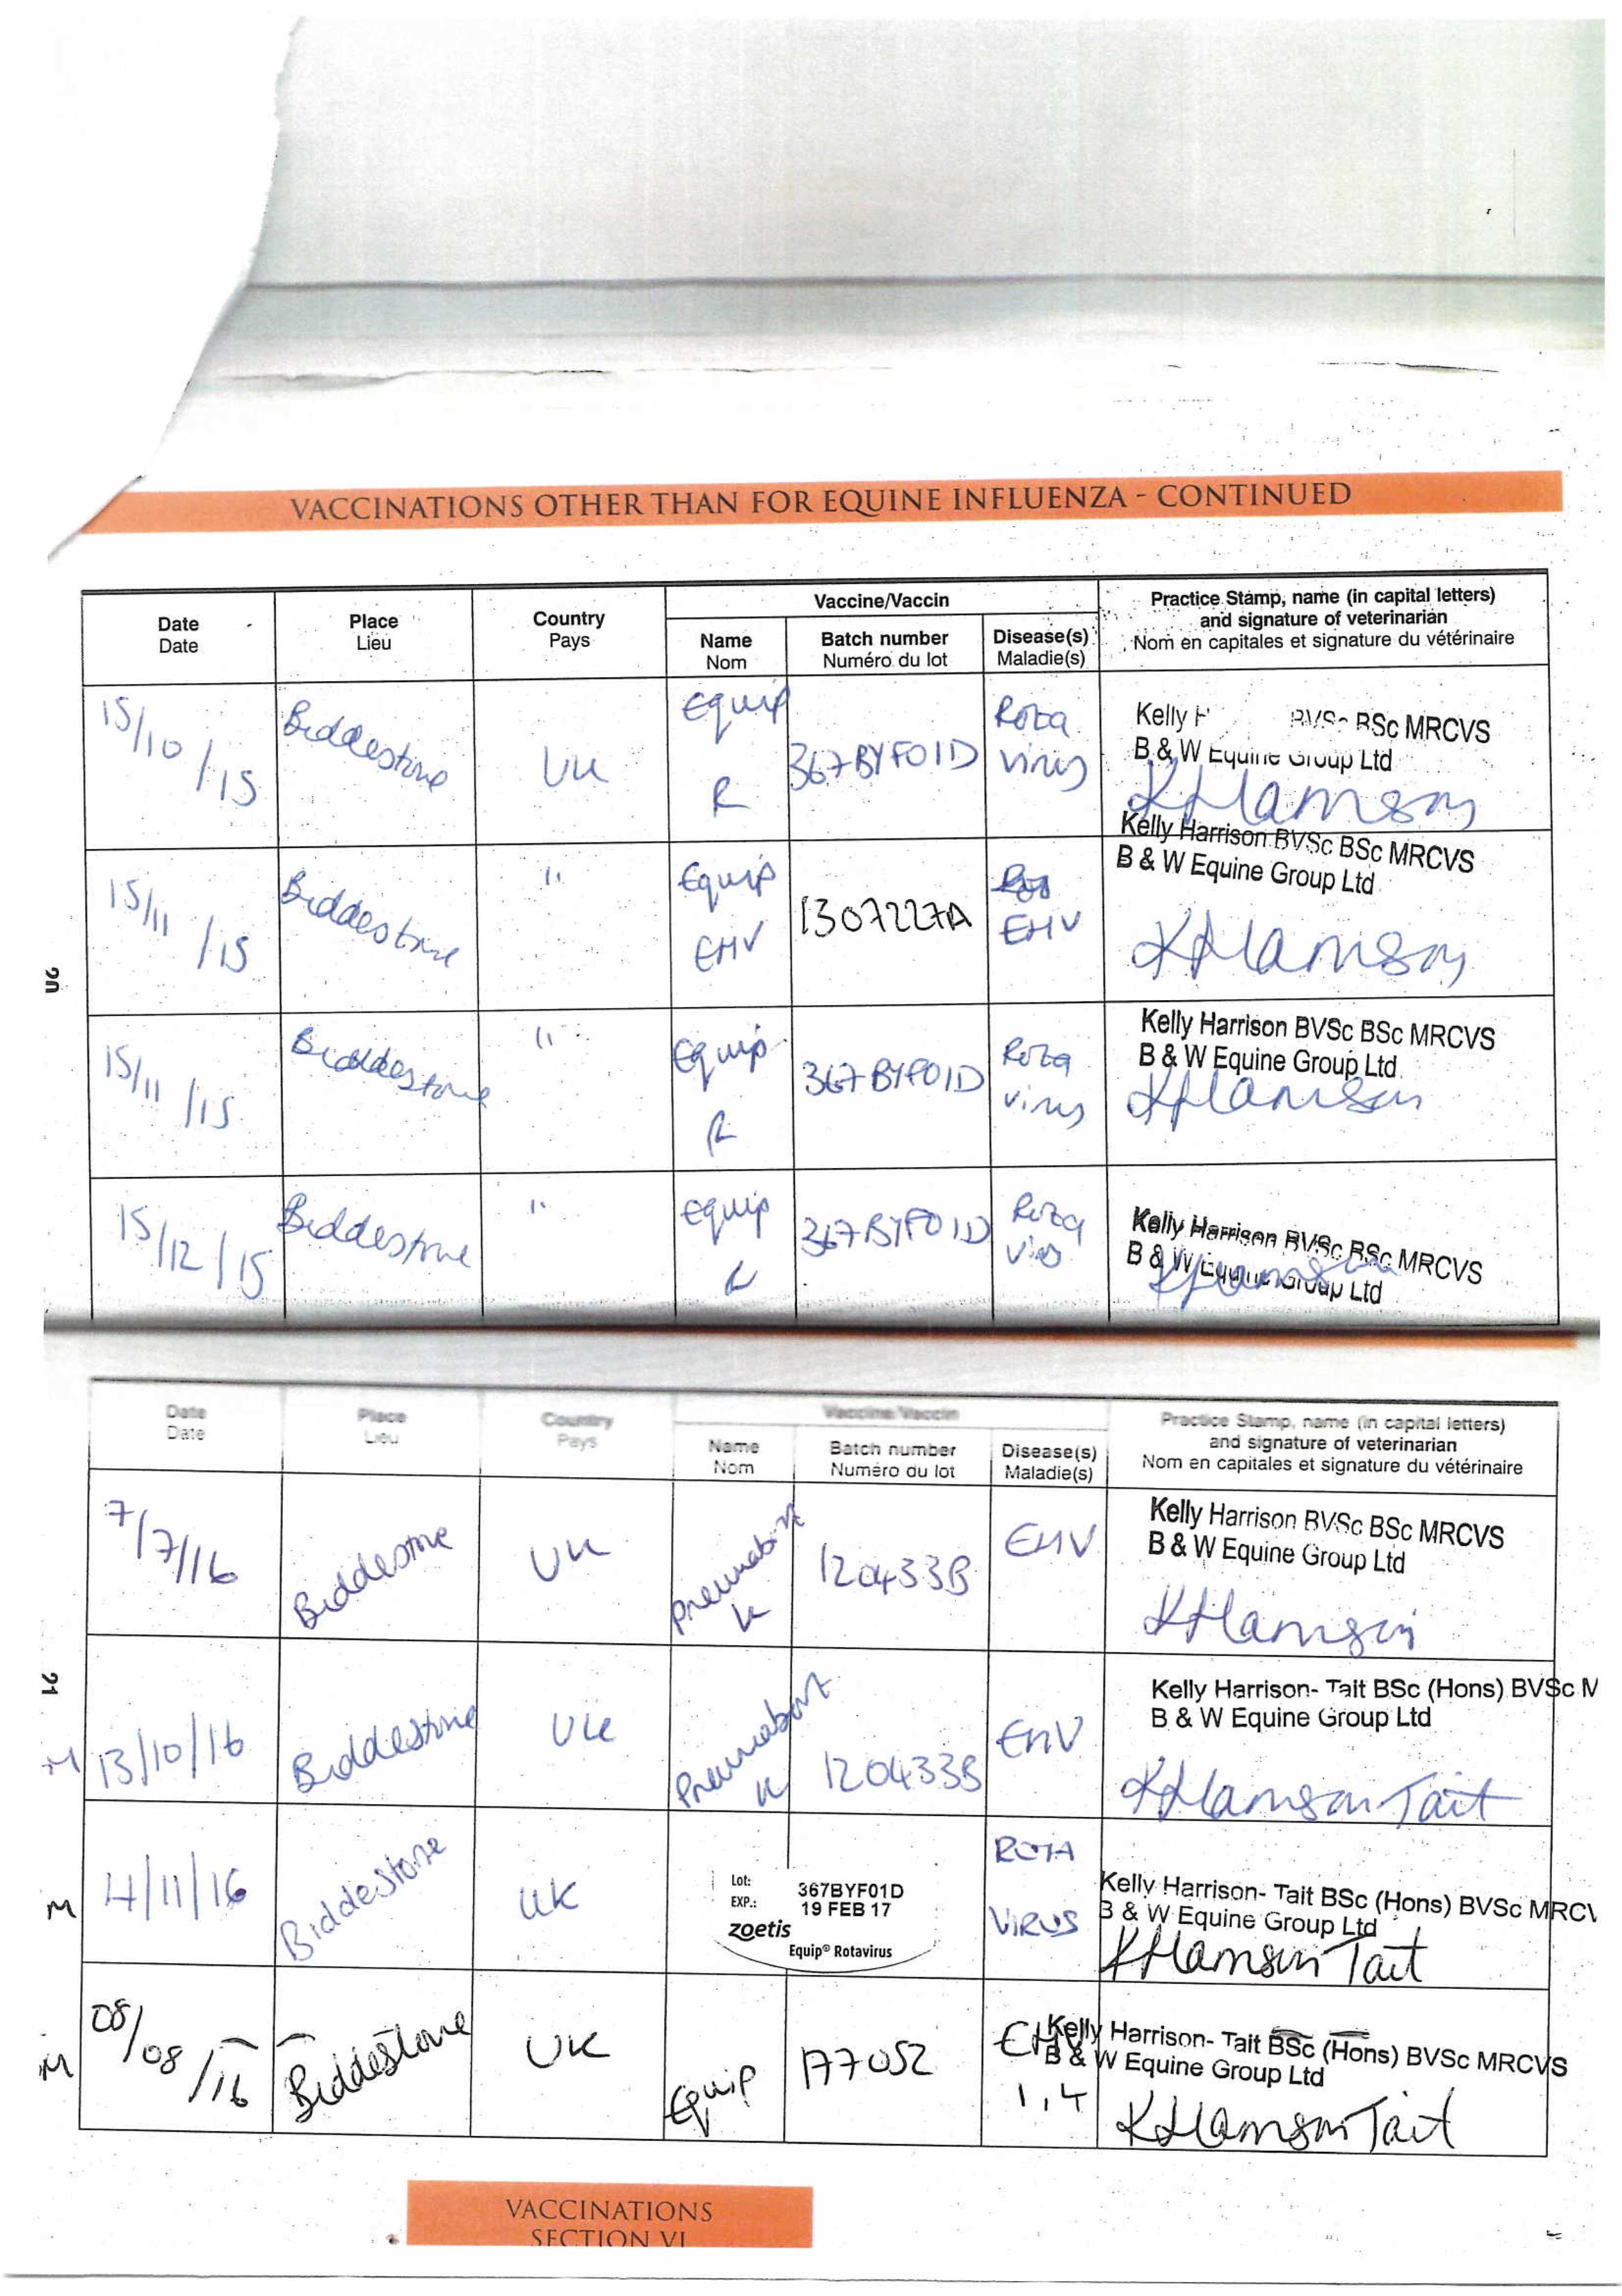 VACCINATIONS OTHER THAN FOR EQUINE INFLUENZA - CONTINUED
Date
Date
Place
Lieu
Country
Pays
Vaccine/Vaccin
Name
Nom
Batch number
Numéro du lot
Disease(s)
Maladie(s)
Practice Stamp, name (in capital letters)
and signature of veterinarian
Nom en capitales et signature du vétérinaire
15/10/15
Biddestone
UK
Equip
R
367BYF01D
Rota
virus
Kelly BSc MRCVS
B & W Equine Group Ltd
KHarrison
15/11/15
Biddestone
"
Equip
EHV
1307227A
EHV
Kelly Harrison BVSc BSc MRCVS
B & W Equine Group Ltd
KHarrison
20
15/11/15
Biddestone
"
Equip
R
367BYF01D
Rota
virus
Kelly Harrison BVSc BSc MRCVS
B & W Equine Group Ltd
KHarrison
15/12/15
Biddestone
"
Equip
367BYF01D
Rota
virus
Kelly Harrison BVSc BSc MRCVS
B & W Equine Group Ltd
Date
Date
Place
Lieu
Country
Pays
Vaccine/Vaccin
Name
Nom
Batch number
Numéro du lot
Disease(s)
Maladie(s)
Practice Stamp, name (in capital letters)
and signature of veterinarian
Nom en capitales et signature du vétérinaire
7/7/16
Biddestone
UK
Pneumabort
K
120433B
EHV
Kelly Harrison BVSc BSc MRCVS
B & W Equine Group Ltd
KHarrison
21
M
13/10/16
Biddestone
UK
Pneumabort
K
120433B
EHV
Kelly Harrison- Tait BSc (Hons) BVSc M
B & W Equine Group Ltd
KHarrison Tait
M
14/11/16
Biddestone
UK
Lot: 367BYF01D
EXP.: 19 FEB 17
zoetis
Equip® Rotavirus
ROTA
VIRUS
Kelly Harrison- Tait BSc (Hons) BVSc MRCV
B & W Equine Group Ltd
KHarrison Tait
M
08/08/16
Biddestone
UK
Equip
177052
EHV
1,4
Kelly Harrison- Tait BSc (Hons) BVSc MRCVS
B & W Equine Group Ltd
KHarrison Tait
VACCINATIONS
SECTION VI